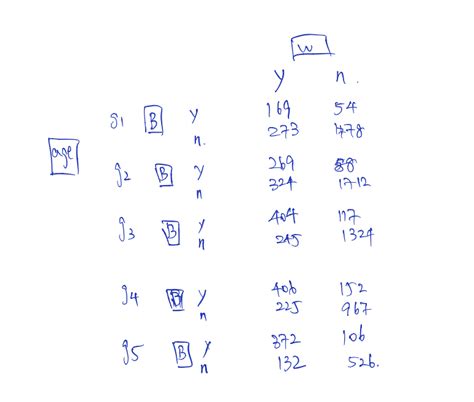 W
y n.
g1 B y 169 54
n. 273
age
g2 B y 269 88
n 324 1712
g3 B y 404 117
n 245 1324
g4 B y 406 152
n 225 967
g5 B y 372 106
n 132 526.